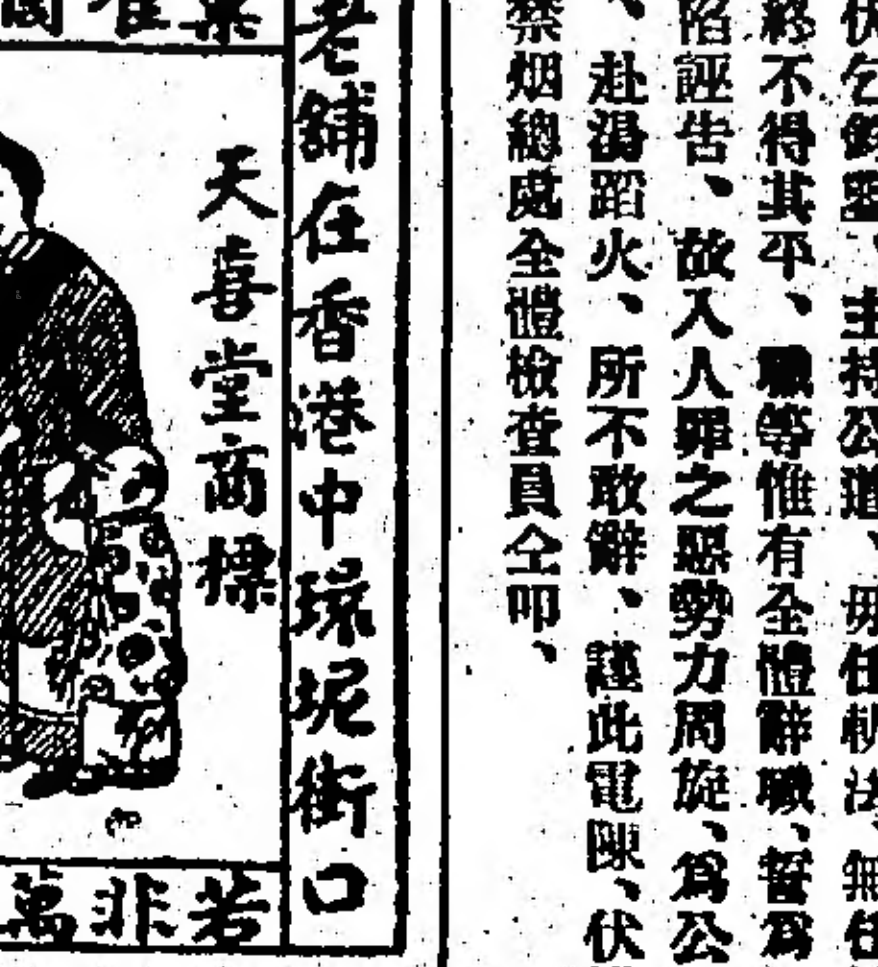 主持公道、毋任軌法、無任
終不得其平、職等惟有全體辭職、誓爲
陷誣告、故入人罪之惡勢力周旋、爲公
、赴湯蹈火、所不敢辭、謹此電陳、伏
禁烟總處全體檢查員仝叩、
老舖在香港中環坭街口
天喜堂商標
若非萬